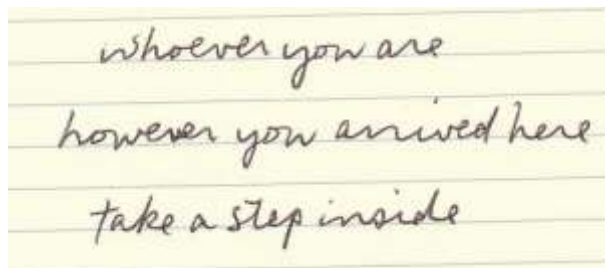 whoever you are
however you arrived here
take a step inside